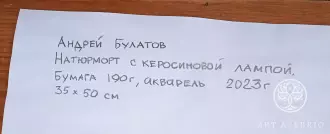 Андрей Булатов
Натюрморт с керосиновой лампой,
Бумага 190г, акварель 2023г
35 x 50 см